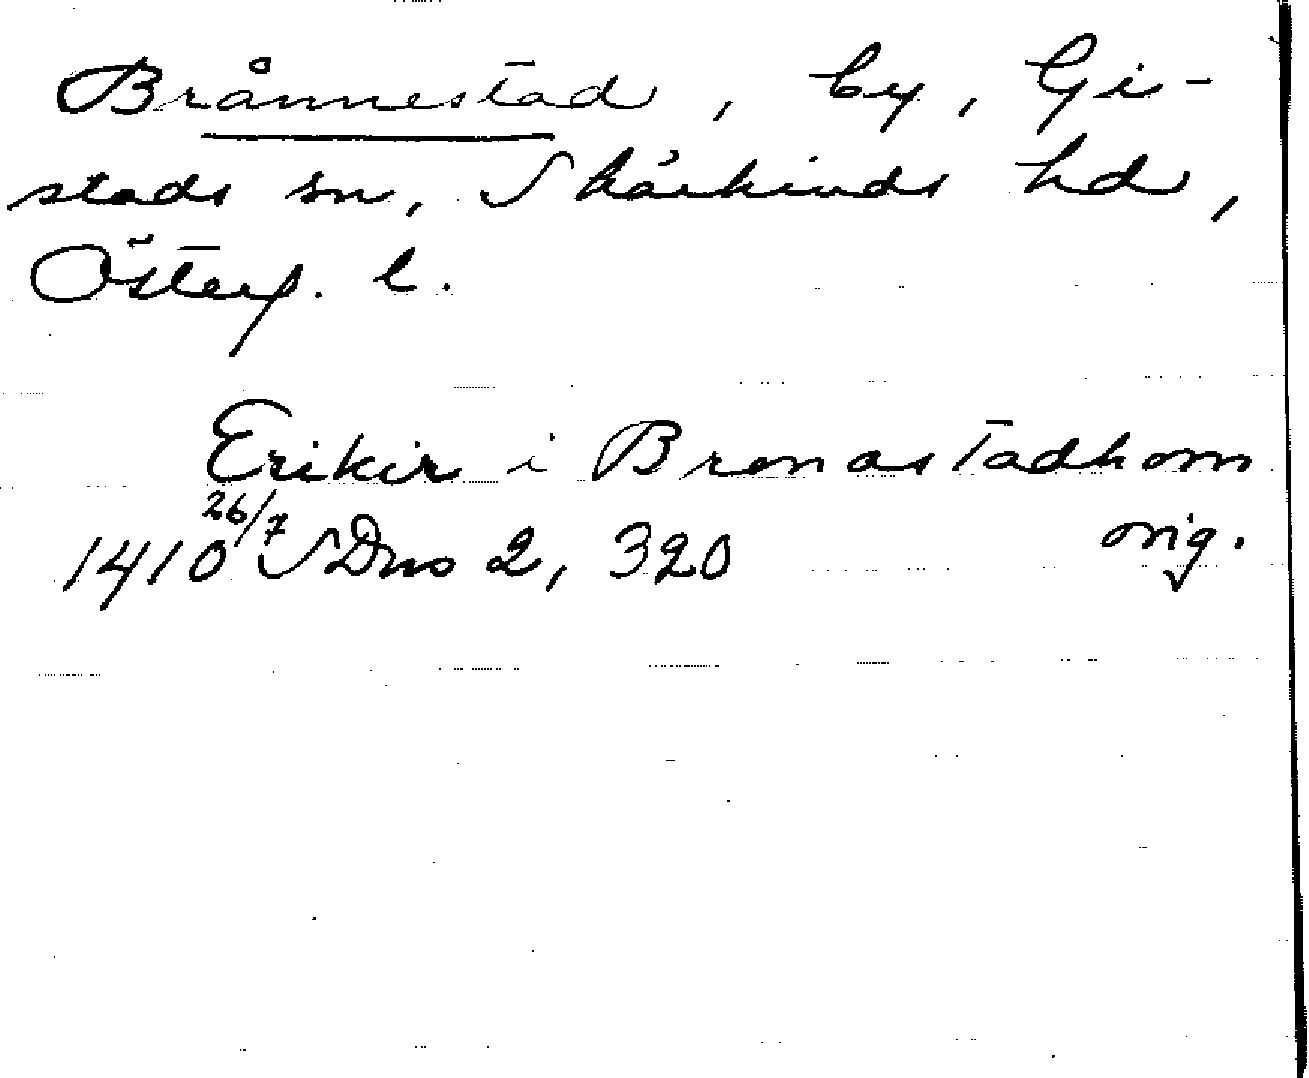 Brånnestad, by, Gi-
stads sn, Skärkinds hd,
Österg. l.
Erikir i Bronastadhom
1410 26/7 SDns 2, 320 orig.